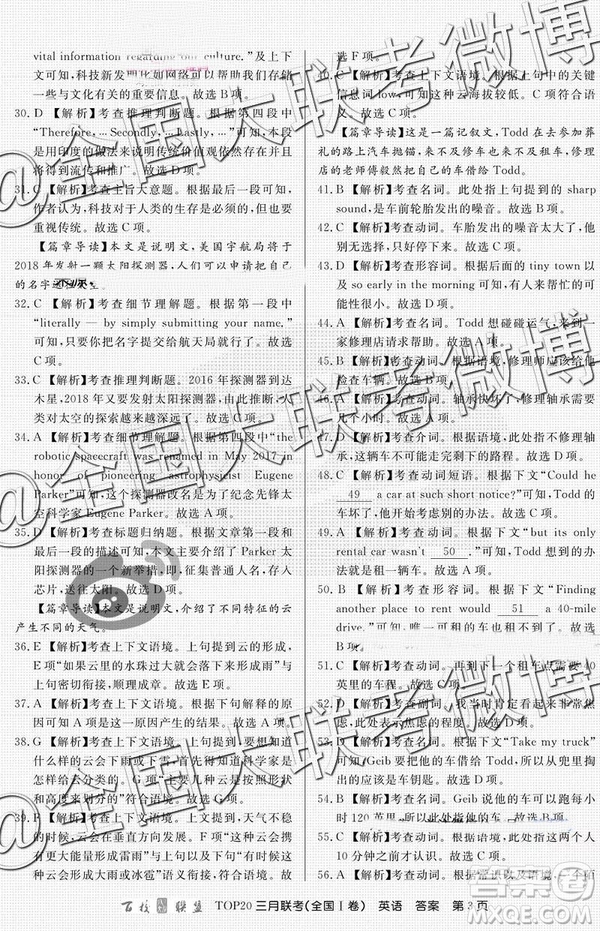 vital information regarding our culture.”及上下
文可知,科技新发明比如网络可以帮助我们存储
一些与文化有关的重要信息。故选B项。
30. D 【解析】考查推理判断题。根据第四段中
“Therefore, … Secondly, … Lastly, …”可知,本段
是用印度的做法来说明传统价值观依然存在并且
得到流传和推广。故选D项。
31. C 【解析】考查主旨大意题。根据最后一段可知,
作者认为,科技对于人类的生存是很重要的,但也要
重视传统。故选C项。
【篇章导读】本文是说明文,美国宇航局将于
2018年发射一颗太阳探测器,人们可以申请把自己
的名字
32. C 【解析】考查细节理解题。根据第一段中
“literally — by simply submitting your name.”
可知,只要你把名字提交给航天局就行了。故选
C项。
33. C 【解析】考查推理判断题。2016年探测器到达
木星,2018年又要发射太阳探测器,由此推断,人
类对太空的探索越来越深远了。故选C项。
34. A 【解析】考查细节理解题。根据第二段中“the
robotic spacecraft was renamed in May 2017 in
honor of pioneering astrophysicist Eugene
Parker”可知,这个探测器改名是为了纪念先锋太
空科学家Eugene Parker。故选A项。
35. D 【解析】考查标题归纳题。根据第一段及最后
一段的描述可知,本文主要介绍了Parker太
阳探测器的一个新举措,即:征集普通人名,存入
芯片,送往太阳。故选D项。
【篇章导读】本文是说明文,介绍了不同特征的云
产生不同的天气。
36. E 【解析】考查上下文语境。上句提到云的形成,
E项“如果云里的水珠过大就会落下形成雨”与
上句密切衔接,符合语境。故选E项。
37. A 【解析】考查上下文语境。根据上句中的原因
可知A项是这一原因产生的结果。故选A项。
38. G 【解析】考查上下文语境。上句提到要想知道
什么样的云会下雨或下雪,需要知道科学家们是
怎样给云分类的。G项“主要几种云是按照形状
和高度分类的”符合语境。故选G项。
39. F 【解析】考查上下文语境。上句提到天气不稳
定的时候,云会在垂直方向发展。F项“这种云会携
带大量的水并能形成雷雨”与上句以及下文中的“最
大的云能形成雷雨或冰雹”语义衔接。故选F项。
文。选F项。
40. C 【解析】考查上下文语境。根据上句中的关键
信息词low可知,这种云海拔较低。故选C项。
【篇章导读】这是一篇记叙文,Todd在去参加葬
礼的路上汽车抛锚,来不及修车也来不及租车,修理
店的老师傅毅然把自己的车借给Todd。
41. B 【解析】考查名词。此处指上句提到的sharp
sound,是车前轮胎发出的噪音。故选B项。
42. A 【解析】考查动词。车胎发出的噪音太大了,他
很担心。故选A项。
43. D 【解析】考查形容词。根据后面的tiny town以
及so early in the morning可知,有人来帮忙的可
能性很小。故选D项。
44. A 【解析】考查名词。Todd想碰碰运气,来到一
家修理店请求帮助。故选A项。
45. B 【解析】考查动词。根据语境,修理师应该给他
检查车辆。故选B项。
46. A 【解析】考查动词。轴承快坏了,修理轴承需要
几个小时。故选A项。
47. D 【解析】考查动词。根据语境,此处指不修理轴
承,这辆车不可能走完剩下的路程。故选D项。
48. C 【解析】考查动词短语。根据下文“Could he
49 a car at such short notice?”可知,Todd的
车坏了,他开始想别的办法。故选C项。
49. A 【解析】考查动词。根据下文“but its only
rental car wasn't 50 .”可知,Todd想到的办
法就是租一辆车。故选A项。
50. B 【解析】考查形容词。根据下文“Finding
another place to rent would 51 a 40-mile
drive.”可知,唯一可租的车也租不到了。故选
B项。
51. C 【解析】考查动词。到另一个租车点需要40
英里的车程。故选C项。
52.
53. 根据下文“Take my truck”
可知,Geib要把他的车借给Todd,所以从兜里掏出
的应该是车钥匙。故选D项。
54. A 【解析】考查名词。Geib说他的车可以每小时
120英里
55. C 【解析】考查副词。根据语境,他们这两个人
10分钟之前才认识。故选C项。
56. A
百校联盟 TOP20三月联考(全国Ⅰ卷) 英语 答案 第3页
@全国大联考微博
@全国大联考微博
@全国大联考微博